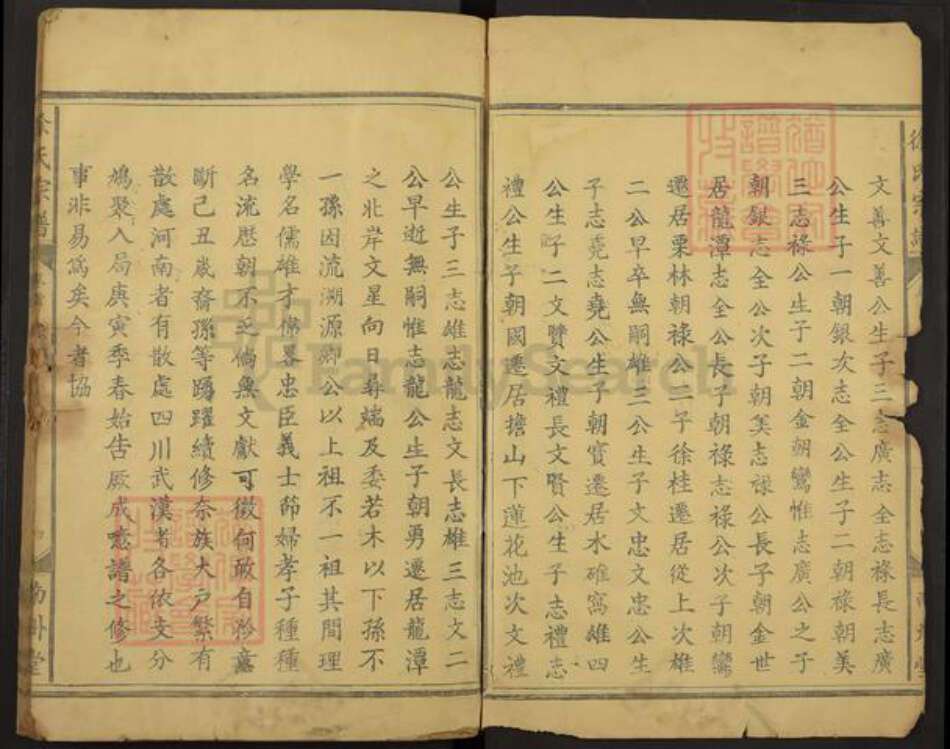 文善文善公生子三志廣志全志祿長志廣
公生子一朝銀次志全公生子二朝祿朝美
三志祿公生子二朝金朝鸞惟志廣公之子
朝銀志全公次子朝美志祿公長子朝金世
居龍潭志全公長子朝祿志祿公次子朝鸞
遷居栗林朝祿公二子徐桂遷居從上次雄
二公早卒無嗣雄三公生子文忠文忠公生
子志堯志堯公生子朝賓遷居水碓窩雄四
公生子二文賢文禮長文賢公生子志禮志
禮公生子朝國遷居擔山下蓮花池次文禮
公生子三志雄志龍志文長志雄三志文二
公早逝無嗣惟志龍公生子朝勇遷居龍潭
之北岸文星向日尋端及委若木以下孫不
一孫因流溯源卿公以上祖不一祖其間理
學名儒雄才偉畧忠臣義士節婦孝子種種
名流歷朝不乏倘無文獻可徵何敢自矜臆
斷己丑歲裔孫等踴躍續修奈族大戶繁有
散處河南者有散處四川武漢者各依支分
鳩聚入局庚寅季春始告厥成噫譜之修也
事非易爲矣今者協
徐氏宗譜
南州堂
FamilySearch